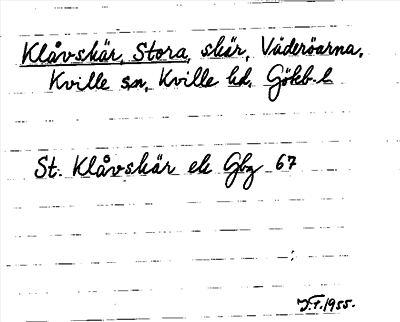 Klåvskär, Stora, skär, Väderöarna,
Kville sn, Kville hd, Göteb. l.
St. Klåvskär ek Gbg 67
J.F. 1955.